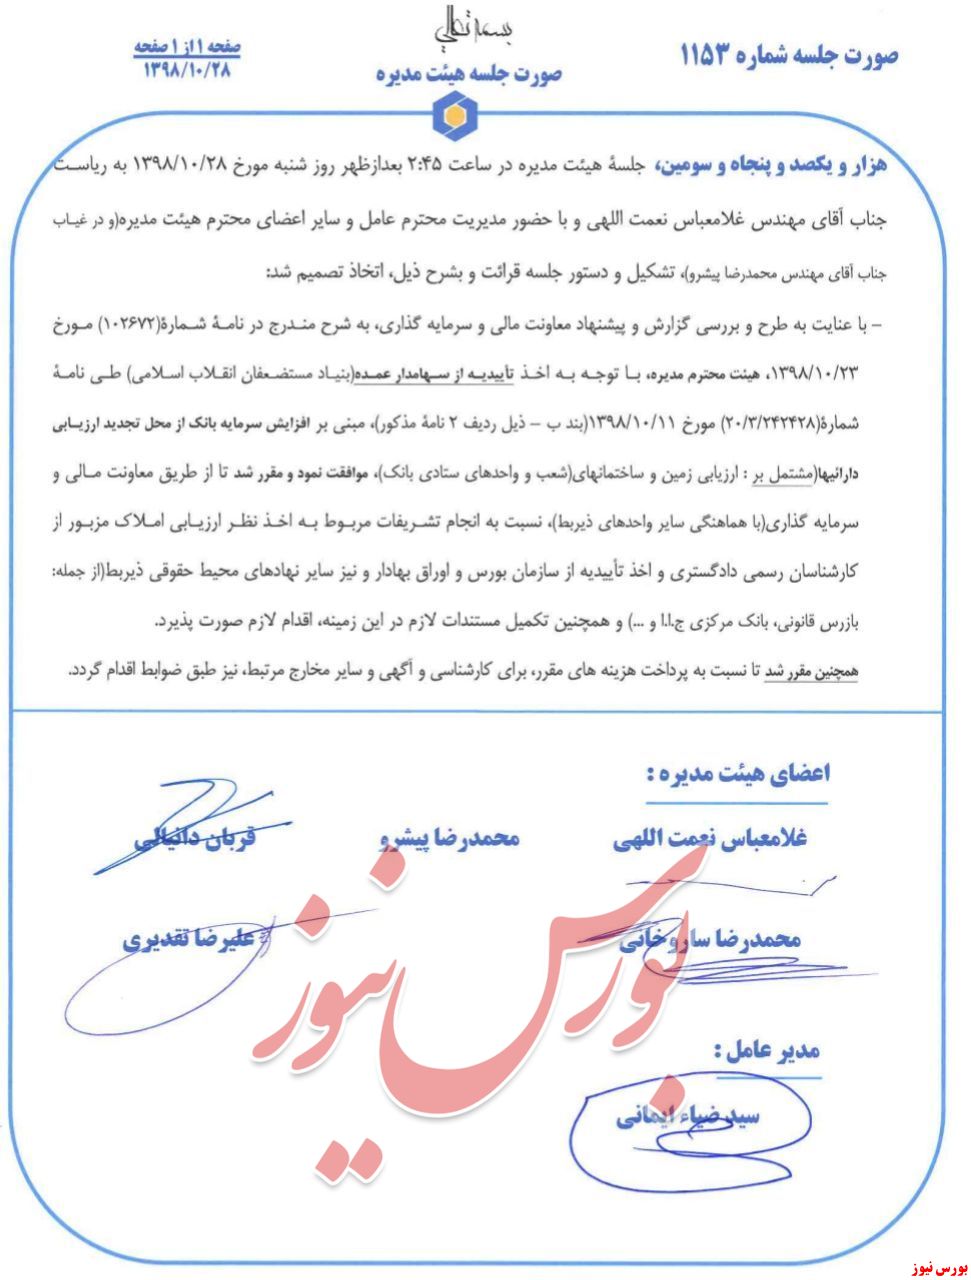 بسمه تعالی
صورت جلسه شماره ۱۱۵۳
صورت جلسه هیئت مدیره
صفحه ۱ از ۱ صفحه
۱۳۹۸/۱۰/۲۸
هزار و یکصد و پنجاه و سومین، جلسهٔ هیئت مدیره در ساعت ۲:۴۵ بعدازظهر روز شنبه مورخ ۱۳۹۸/۱۰/۲۸ به ریاست
جناب آقای مهندس غلامعباس نعمت اللهی و با حضور مدیریت محترم عامل و سایر اعضای محترم هیئت مدیره(و در غیاب
جناب آقای مهندس محمدرضا پیشرو)، تشکیل و دستور جلسه قرائت و بشرح ذیل، اتخاذ تصمیم شد:
– با عنایت به طرح و بررسی گزارش و پیشنهاد معاونت مالی و سرمایه گذاری، به شرح مندرج در نامهٔ شمارهٔ(۱۰۲۶۷۲) مورخ
۱۳۹۸/۱۰/۲۳، هیئت محترم مدیره، با توجه به اخذ تأییدیه از سهامدار عمده(بنیاد مستضعفان انقلاب اسلامی) طی نامهٔ
شمارهٔ(۲۰/۳/۲۴۲۴۲۸) مورخ ۱۳۹۸/۱۰/۱۱(بند ب – ذیل ردیف ۲ نامهٔ مذکور)، مبنی بر افزایش سرمایه بانک از محل تجدید ارزیابی
دارائیها(مشتمل بر : ارزیابی زمین و ساختمانهای(شعب و واحدهای ستادی بانک)، موافقت نمود و مقرر شد تا از طریق معاونت مالی و
سرمایه گذاری(با هماهنگی سایر واحدهای ذیربط)، نسبت به انجام تشریفات مربوط به اخذ نظر ارزیابی املاک مزبور از
کارشناسان رسمی دادگستری و اخذ تأییدیه از سازمان بورس و اوراق بهادار و نیز سایر نهادهای محیط حقوقی ذیربط(از جمله:
بازرس قانونی، بانک مرکزی ج.ا.ا و ...) و همچنین تکمیل مستندات لازم در این زمینه، اقدام لازم صورت پذیرد.
همچنین مقرر شد تا نسبت به پرداخت هزینه های مقرر، برای کارشناسی و آگهی و سایر مخارج مرتبط، نیز طبق ضوابط اقدام گردد.
اعضای هیئت مدیره :
غلامعباس نعمت اللهی محمدرضا پیشرو قربان دانیالی
محمدرضا ساروخانی علیرضا تقدیری
مدیر عامل :
سید ضیاء ایمانی
بورس نیوز
بورس نیوز